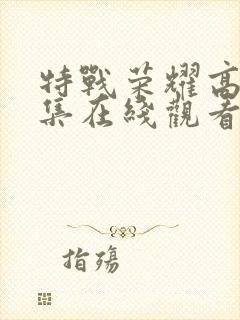 特戰荣耀高
集在綫觀看
指殇